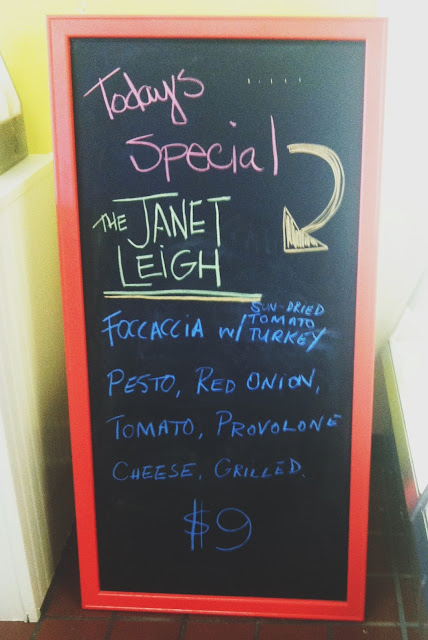 Todays
Special
THE JANET
LEIGH
FOCCACCIA W/ SUN-DRIED
TOMATO
TURKEY
PESTO, RED ONION,
TOMATO, PROVOLONE
CHEESE, GRILLED.
$9